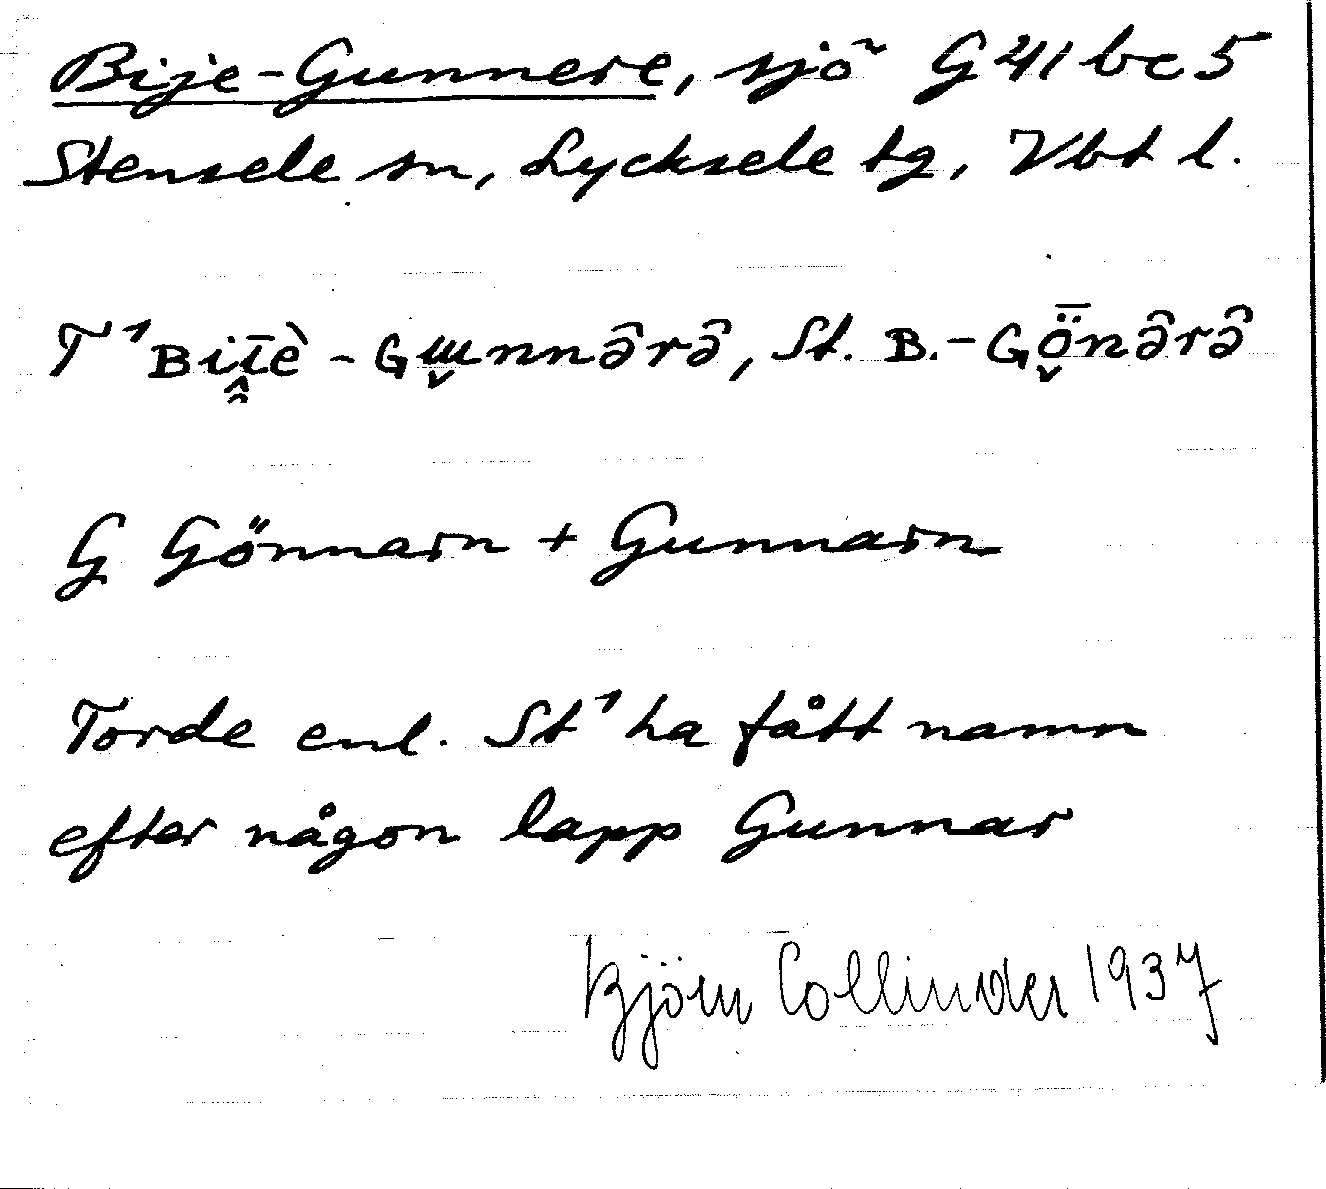 Bije-Gunnere, sjö G 41 bc 5
Stensele sn, Lycksele tg, Vbt l.
T¹ Biı̭̄è - Gɯ̬nnârâ, St. B.-Gȫ̬nârâ
G Gönnarn + Gunnarn
Torde enl. St¹ ha fått namn
efter någon lapp Gunnar
Björn Collinder 1937